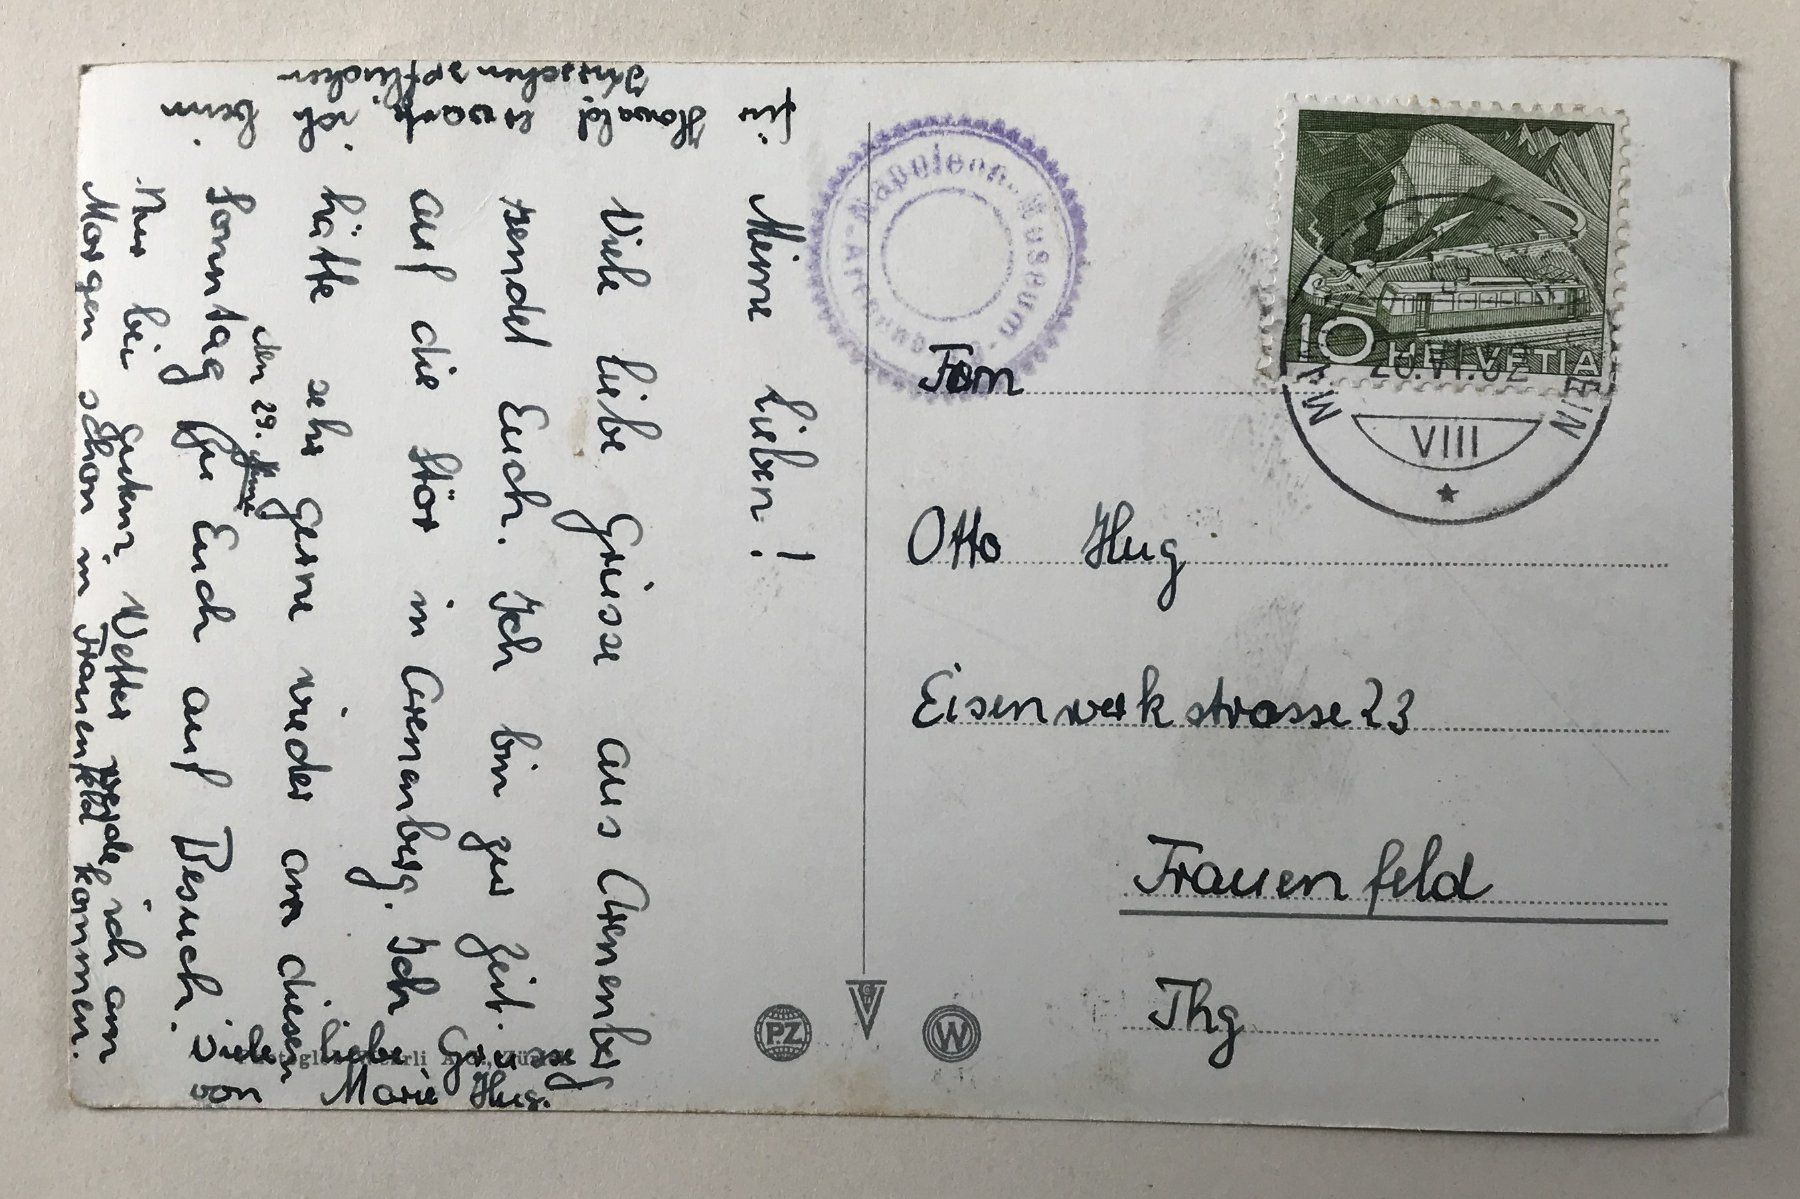 Meine Lieben!
Viele liebe Grüsse aus Arenenberg
sendet Euch. Ich bin zur Zeit
auf die Stör in Arenenberg. Ich
hätte sehr gerne wieder am diesen
den 29.
Sonntag zu Euch auf Besuch.
Nur bei gutem Wetter werde ich am
Morgen schon in Frauenfeld kommen.
viele liebe Grüsse
von Marie Hug.
für Howald ich beim
pflücken
Napoleon-Museum
10 HELVETIA
VIII
Fam
Otto Hug
Eisenwerkstrasse 23
Frauenfeld
Thg
PZ
W